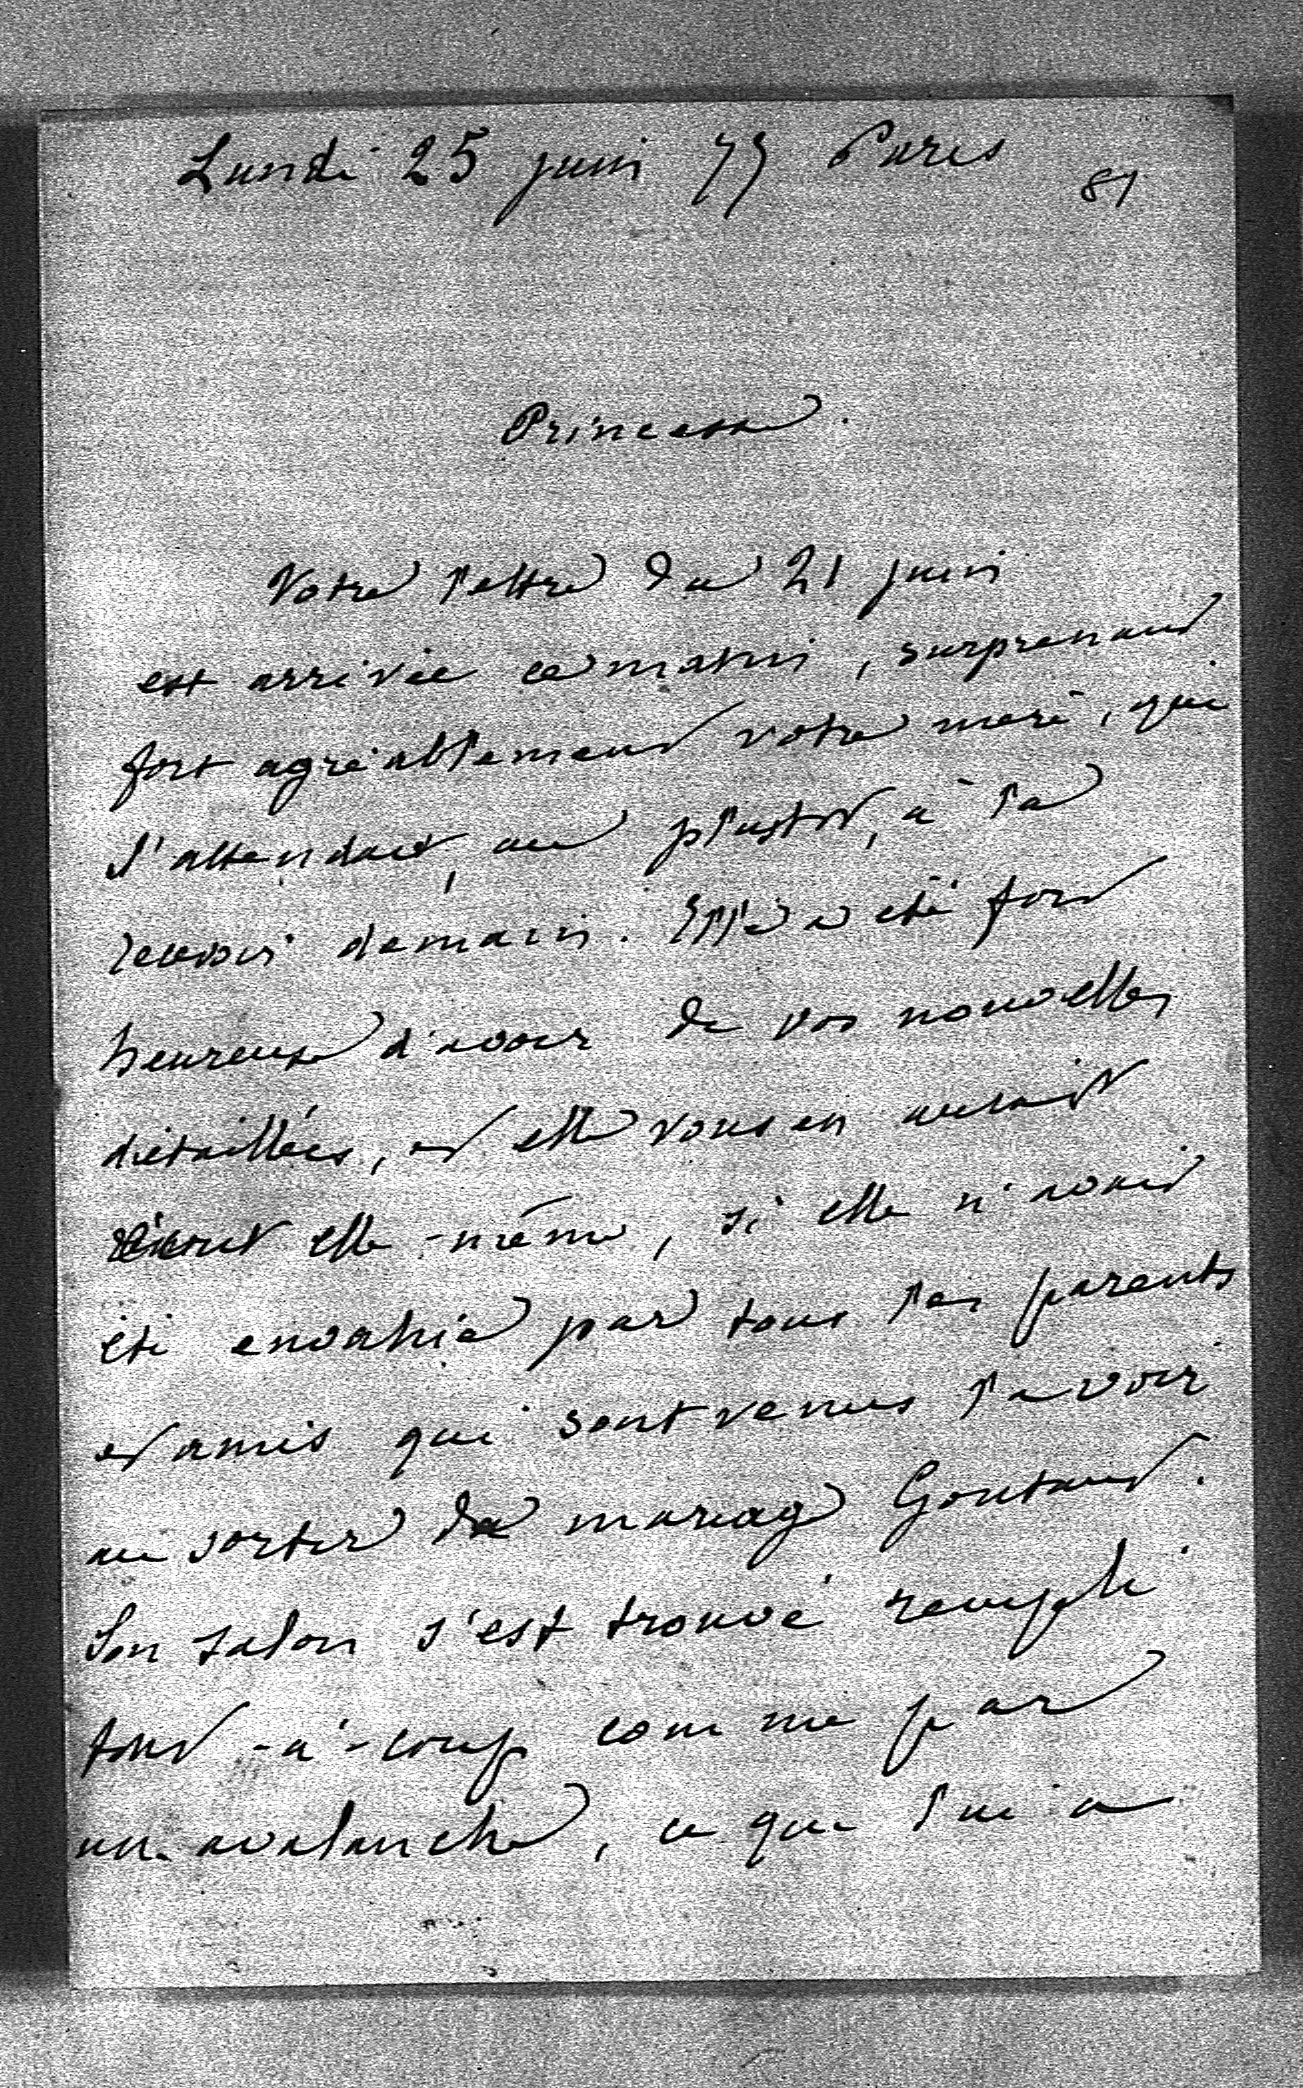 Lundi 25 juin 77 Paris
81
Princesse.
Votre lettre du 21 juin
est arrivée ce matin, surprenant
fort agréablement votre mère, qui
s'attendait, au plustôt, à la
recevoir demain. Elle a été fort
heureuse d'avoir de vos nouvelles
détaillées, et elle vous en aurait
écrit elle-même, si elle n'avait
été envahie par tous les parents
et amis qui sont venus la voir
au sortir du mariage Gontaut.
Son salon s'est trouvé rempli
tout-à-coup comme par
une avalanche, ce qui lui a